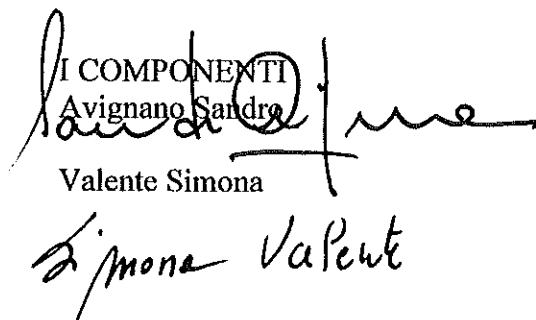 I COMPONENTI
Avignano Sandro
Valente Simona
Simona Valente